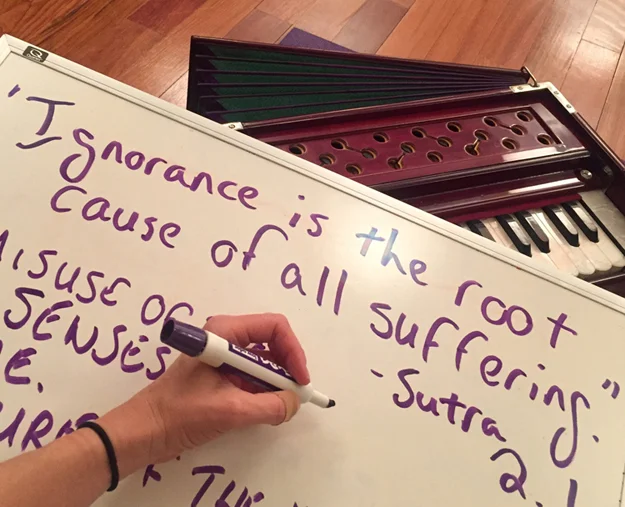 "Ignorance is the root
cause of all suffering."
-Sutra
2.1
MISUSE OF
SENSES
THE